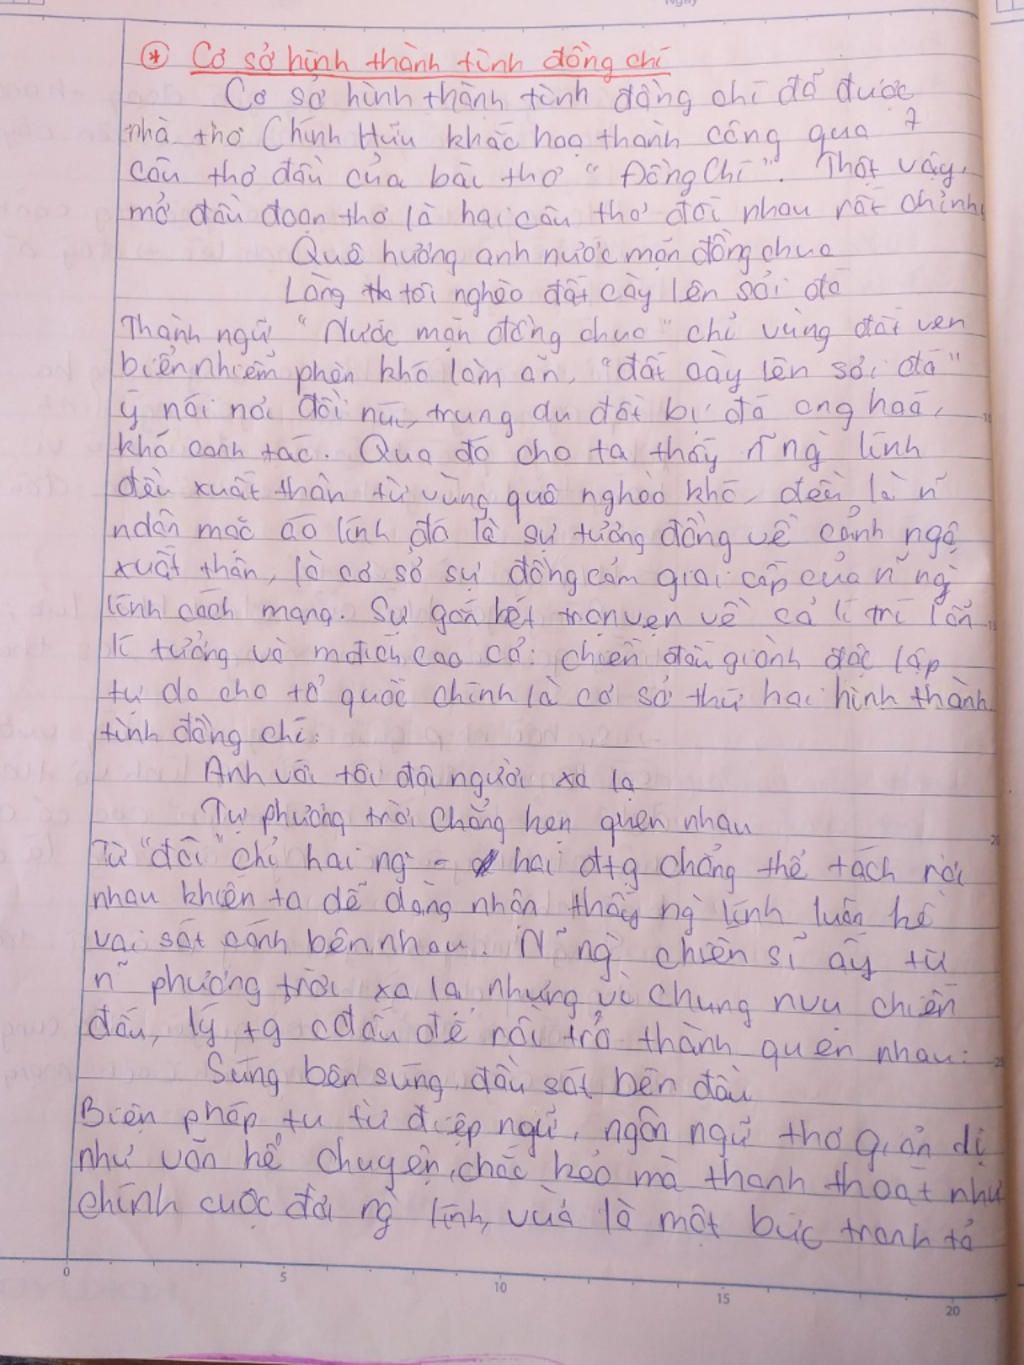 * Cơ sở hình thành tình đồng chí
Cơ sở hình thành tình đồng chí đã được
nhà thơ Chính Hữu khắc hoạ thành công qua 7
câu thơ đầu của bài thơ "Đồng Chí". Thật vậy,
mở đầu đoạn thơ là hai câu thơ đối nhau rất chỉnh
Quê hương anh nước mặn đồng chua
Làng tôi nghèo đất cày lên sỏi đá
Thành ngữ "Nước mặn đồng chua" chỉ vùng đất ven
biển nhiễm phèn khó làm ăn, "đất cày lên sỏi đá"
ý nói nơi đồi núi, trung du đất bị đá ong hoá,
khó canh tác. Qua đó cho ta thấy ñ ng` lính
đều xuất thân từ vùng quê nghèo khó, đều là ñ
ndân mặc áo lính đó là sự tương đồng về cảnh ngộ
xuất thân, là cơ sở sự đồng cảm giai cấp của ñ ng`
lính cách mạng. Sự gắn kết trọn vẹn về cả lí trí lẫn
lí tưởng và mđích cao cả: chiến đấu giành độc lập
tự do cho tổ quốc chính là cơ sở thứ hai hình thành
tình đồng chí:
Anh với tôi đôi người xa lạ
Tự phương trời chẳng hẹn quen nhau
Từ "đôi" chỉ hai ng` - hai đtg chẳng thể tách rời
nhau khiến ta dễ dàng nhận thấy ng` lính luôn kề
vai sát cánh bên nhau. Ñ ng` chiến sĩ ấy từ
ñ phương trời xa lạ nhưng vì chung nvụ chiến
đấu, lý tg cđấu để rồi trở thành quen nhau:
Súng bên súng, đầu sát bên đầu
Biện pháp tu từ điệp ngữ, ngôn ngữ thơ giản dị
như văn kể chuyện, chắc khỏe mà thanh thoát như
chính cuộc đời ng` lính, vừa là một bức tranh tả
0 5 10 15 20